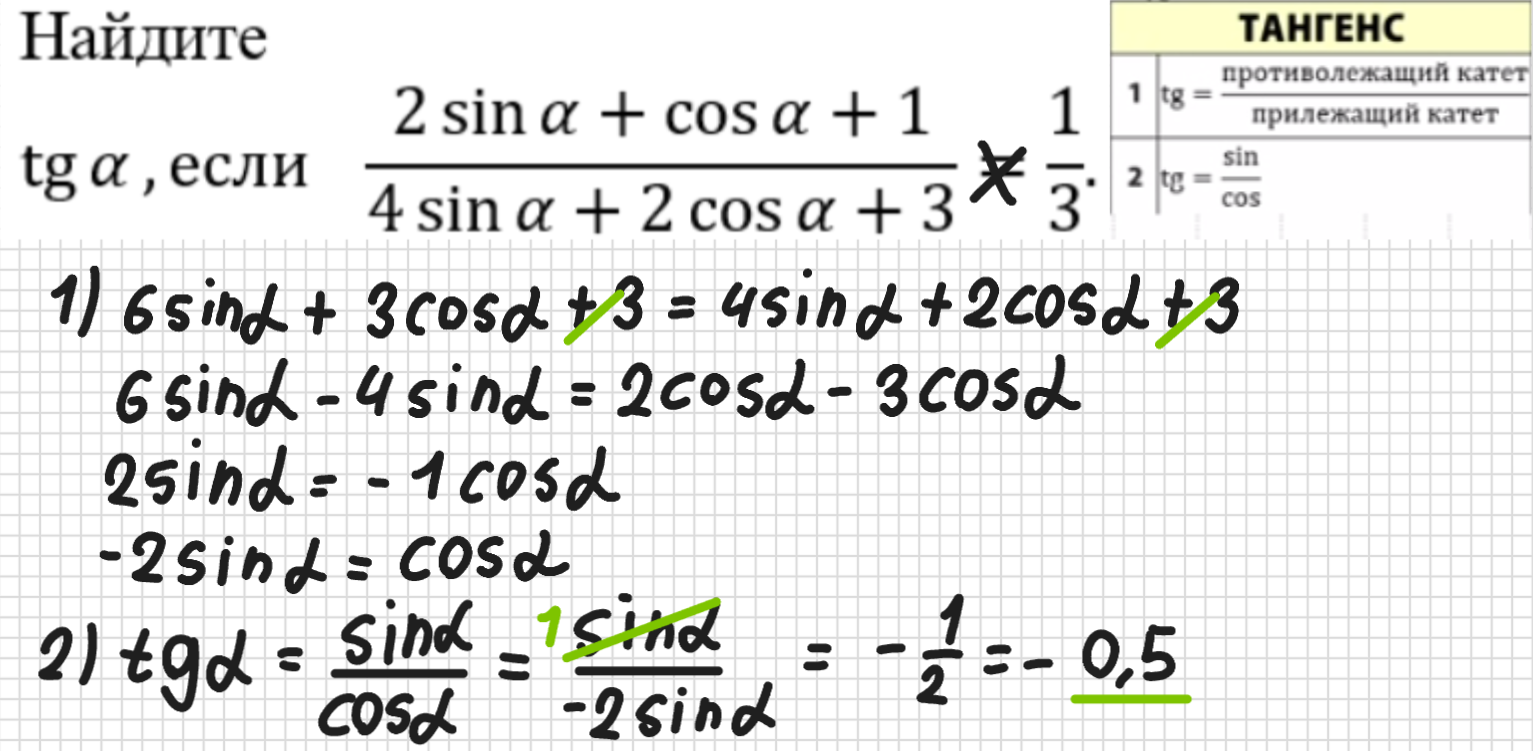 Найдите
tg α , если (2 sin α + cos α + 1)/(4 sin α + 2 cos α + 3) = 1/3.
ТАНГЕНС
1 tg = противолежащий катет/прилежащий катет
2 tg = sin/cos
1) 6sinα + 3cosα + 3 = 4sinα + 2cosα + 3
6sinα - 4sinα = 2cosα - 3cosα
2sinα = - 1cosα
-2sinα = cosα
2) tgα = sinα/cosα = 1 sinα/-2sinα = - 1/2 = - 0,5